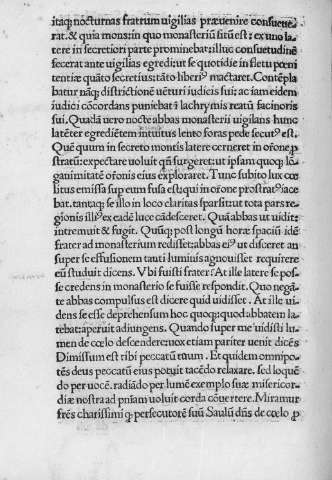 itaq; nocturnas fratrum uigilias præuenire consueue,
rat. & quia mons; in quo monasteriũ sitũ est: ex uno la,
tere in secretiori parte prominebat: illuc consuetudinẽ
fecerat ante uigilias egredi; ut se quotidie in fletu pœni
tentiæ quãto secretius; tãto liberi⁹ mactaret. Contẽpla
batur nãq; districtiõnem uẽturi iudicis sui; ac iam eidem
iudici cõcordans puniebat ĩ lachrymis reatũ facinoris
sui. Quadã uero nocte abbas monasterii uigilans hunc
latẽter egrediẽtem intuitus lento foras pede secut⁹ est.
Quẽ quum in secreto montis latere cerneret in orõne p
stratũ: expectare uoluit qñ surgeret: ut ipsam quoq; lõ,
ganimitatẽ orõnis eius exploraret. Tunc subito lux cœ
litus emissa sup eum fusa est; qui in orõne prostrat⁹ iace
bat. tantaq; se illo in loco claritas sparsit: ut tota pars re
gionis illi⁹ ex eadẽ luce cãdesceret. Quã abbas ut uidit;
intremuit & fugit. Quũq; post longũ horæ spaciũ idẽ
frater ad monasterium redisset: abbas ei⁹ ut disceret an
super se effusionem tanti luminis agnouisset requirere
eũ studuit dicens. Vbi fuisti frater? At ille latere se pos,
se credens in monasterio se fuisse respondit. Quo negã,
te abbas compulsus est dicere quid uidisset. At ille ui,
dens se esse deprehensum hoc quoq; quod abbatem la,
tebat: aperuit adiungens. Quando super me uidisti lu,
men de cœlo descendere: uox etiam pariter uenit dicẽs
Dimissum est tibi peccatũ tuum. Et quidem omnipo,
tẽs deus peccatũ eius potuit tacẽdo relaxare. sed loquẽ
do per uocẽ. radiãdo per lumẽ exemplo suæ misericor,
diæ nostra ad pñiam uoluit corda cõuertere. Miramur
frẽs charissimi q; persecutorẽ suũ Saulũ dñs de cœlo p